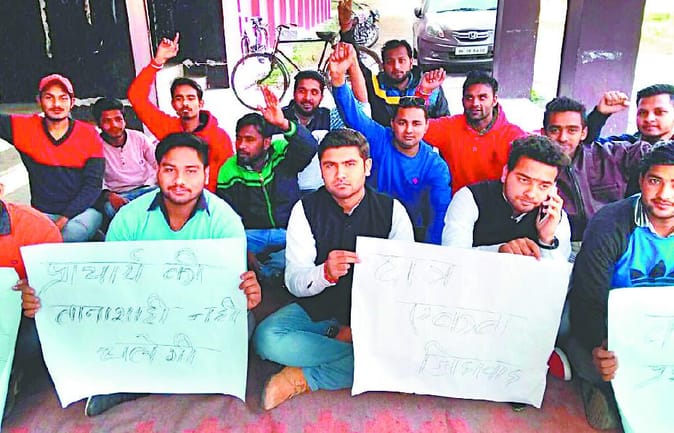 प्राचार्य की
तानाशाही नही
चलेगी
छात्र
एकता
जिन्दाबाद